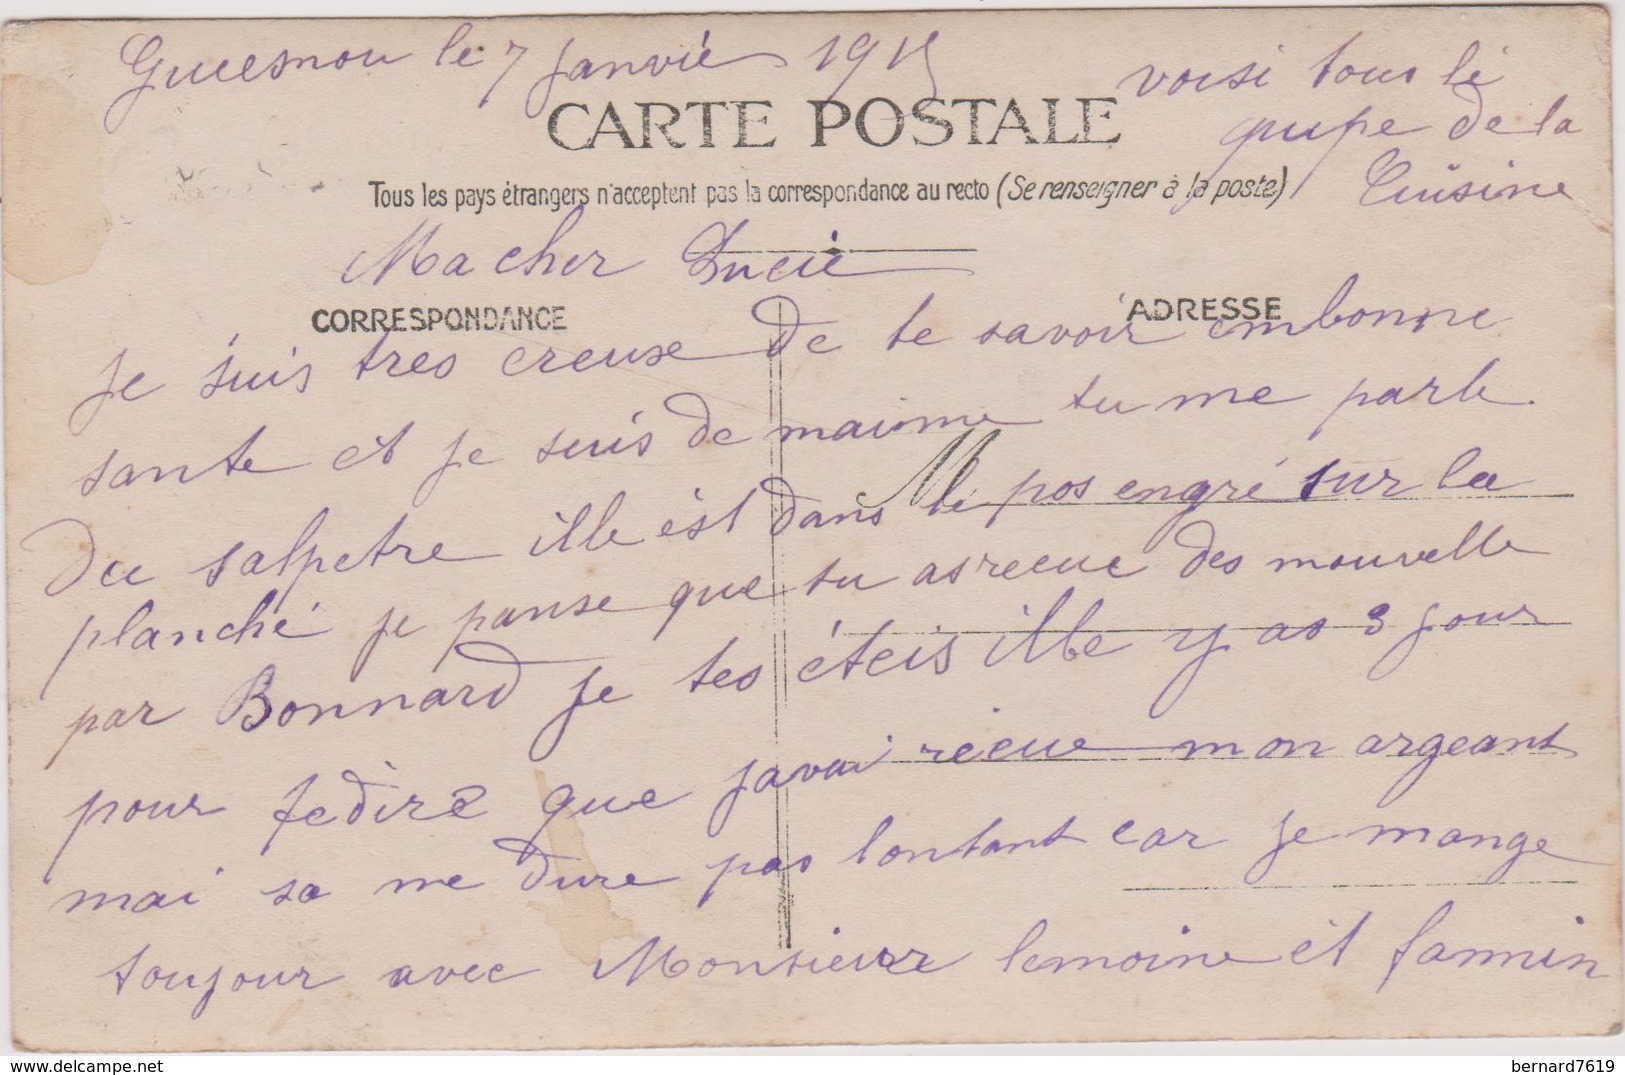 Guuesnou le 7 Janvié 1915
voisi tous lé
gupe de la
Cuisine
CARTE POSTALE
Tous les pays étrangers n'acceptent pas la correspondance au recto (Se renseigner à la poste)
Ma cher Lucie
CORRESPONDANCE
ADRESSE
Je suis tres creuse de te savoir embonne
sante et je suis de maime tu me parle
du salpetre ille est dans le pos engré sur la
planché je panse que tu as receue des nouvelle
par Bonnard je tes éteis ille y as 3 jour
pour tedire que javai récue mon argeant
mai sa me dure pas lontant car je mange
toujour avec Monsieure lemoine èt fammin
bernard7619